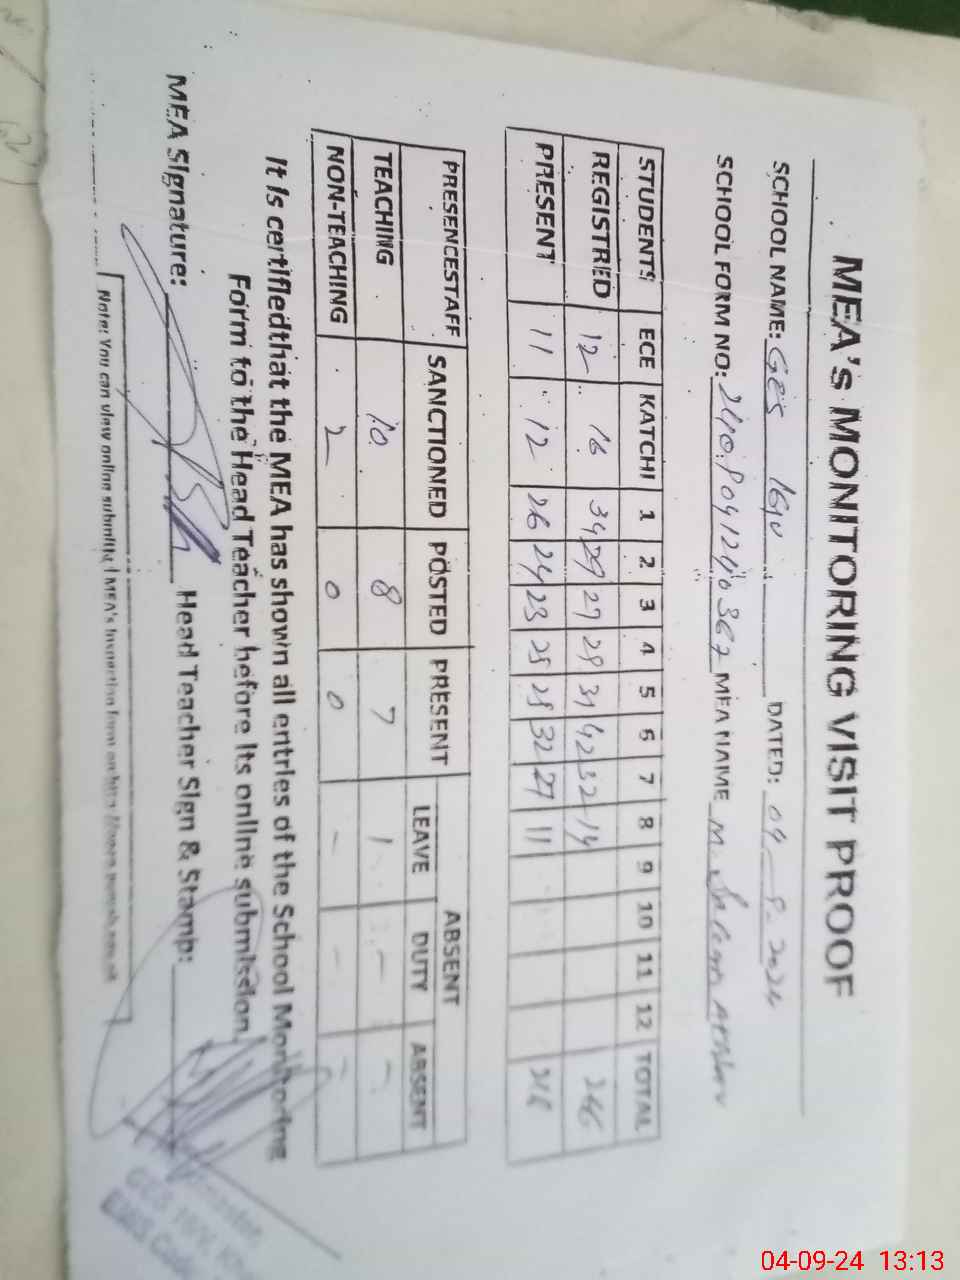 MEA's MONITORING VISIT PROOF
SCHOOL NAME: GES 16 DATED: 04-9-2024
SCHOOL FORM NO: MEA NAME M.
STUDENTS ECE KATCHI 1 2 3 4 5 6 7 8 9 10 11 12 TOTAL
REGISTRED 12 16 34 29 27 29 31 42 32 14 266
PRESENT 11 12 26 24 23 25 25 32 27 11 216
PRESENCESTAFF SANCTIONED POSTED PRESENT ABSENT
LEAVE DUTY ABSENT
TEACHING 10 8 7 1 - -
NON-TEACHING 2 0 0 - - -
It is certifiedthat the MEA has shown all entries of the School Monitoring
Form to the Head Teacher before its online submission.
MEA Signature: Head Teacher Sign & Stamp:
Note: You can view online submitted MEA's Inspection form on
GES
EMIS Code
04-09-24 13:13